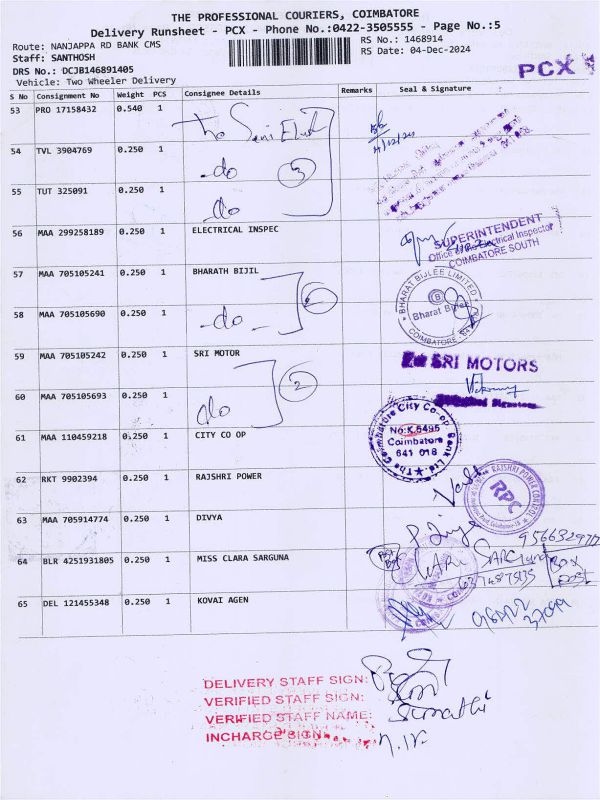 THE PROFESSIONAL COURIERS, COIMBATORE
Delivery Runsheet - PCX - Phone No.:0422-3505555 - Page No.:5
Route: NANJAPPA RD BANK CMS
RS No.: 1468914
Staff: SANTHOSH
RS Date: 04-Dec-2024
DRS No.: DCJB146891405
Vehicle: Two Wheeler Delivery
PCX
S No Consignment No Weight PCS Consignee Details Remarks Seal & Signature
53 PRO 17158432 0.540 1
54 TVL 3904769 0.250 1 -do 3
55 TUT 325091 0.250 1 do
56 MAA 299258189 0.250 1 ELECTRICAL INSPEC
SUPERINTENDENT
Office of the Electrical Inspector
COIMBATORE SOUTH
57 MAA 705105241 0.250 1 BHARATH BIJIL
BHARAT BIJLEE LIMITED
B
Bharat Bijlee
COIMBATORE
58 MAA 705105690 0.250 1 -do-
59 MAA 705105242 0.250 1 SRI MOTOR
SRI MOTORS
60 MAA 705105693 0.250 1 do 2
61 MAA 110459218 0.250 1 CITY CO OP
The Coimbatore City Co-op Bank Ltd
No:K.5495
Coimbatore
641 018
62 RKT 9902394 0.250 1 RAJSHRI POWER
RAJSHRI POWER CONTROL
RPC
63 MAA 705914774 0.250 1 DIVYA
64 BLR 4251931805 0.250 1 MISS CLARA SARGUNA
65 DEL 121455348 0.250 1 KOVAI AGEN
DELIVERY STAFF SIGN:
VERIFIED STAFF SIGN:
VERIFIED STAFF NAME: Sumathi
INCHARGE SIGN: